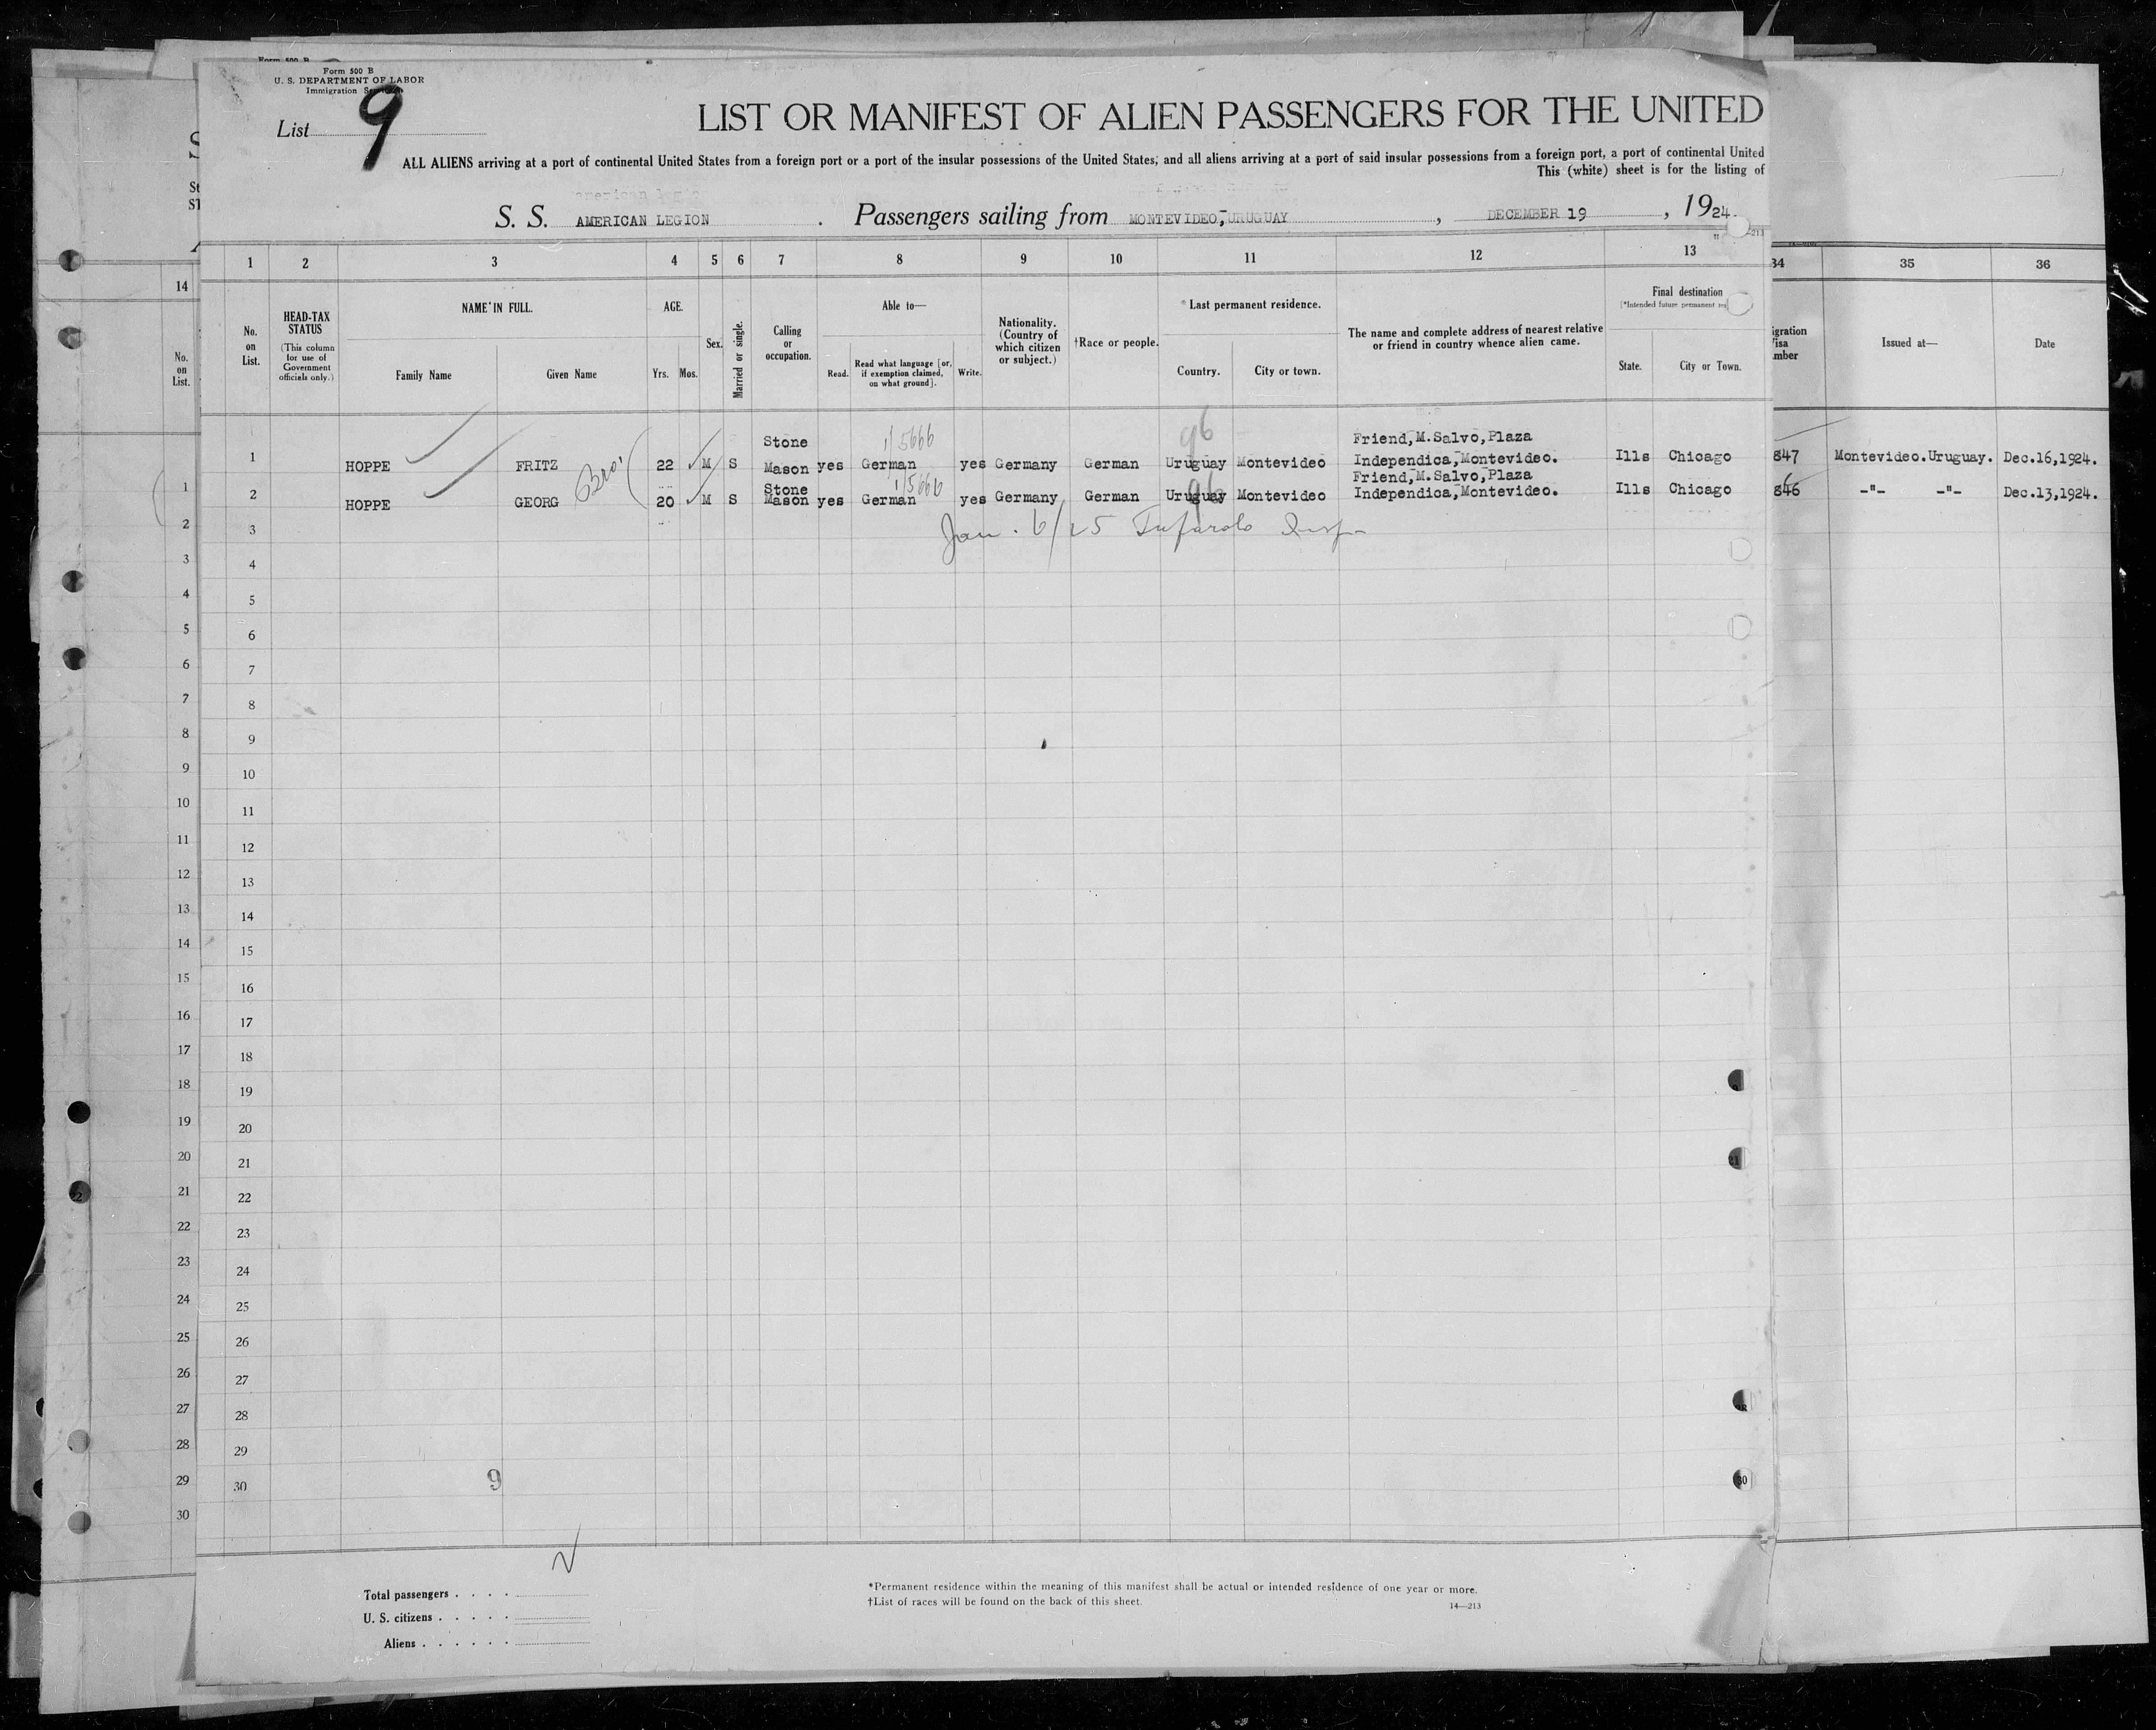 Form 500 B
U. S. DEPARTMENT OF LABOR
Immigration Service
List 9
LIST OR MANIFEST OF ALIEN PASSENGERS FOR THE UNITED
ALL ALIENS arriving at a port of continental United States from a foreign port or a port of the insular possessions of the United States, and all aliens arriving at a port of said insular possessions from a foreign port, a port of continental United
This (white) sheet is for the listing of
S. S. AMERICAN LEGION . Passengers sailing from MONTEVIDEO, URUGUAY , DECEMBER 19 , 1924.
1 2 3 4 5 6 7 8 9 10 11 12 13 34 35 36
14
No. on List.
HEAD-TAX STATUS
(This column for use of Government officials only.)
NAME IN FULL.
Family Name Given Name
AGE.
Yrs. Mos.
Sex.
Married or single.
Calling or occupation.
Able to—
Read. Read what language [or, if exemption claimed, on what ground]. Write.
Nationality. (Country of which citizen or subject.)
†Race or people.
*Last permanent residence.
Country. City or town.
The name and complete address of nearest relative or friend in country whence alien came.
Final destination
(*Intended future permanent
State. City or Town.
Issued at—
Date
No. on List.
1 HOPPE FRITZ 22 M S Stone Mason yes German yes Germany German Uruguay Montevideo Friend, M. Salvo, Plaza Independica, Montevideo. Ills Chicago 847 Montevideo.Uruguay. Dec.16,1924.
Bro'
1/5666
96
2 HOPPE GEORG 20 M S Stone Mason yes German yes Germany German Uruguay Montevideo Friend, M. Salvo, Plaza Independica, Montevideo. Ills Chicago 846 -"- -"- Dec.13,1924.
1/5666
96
Jan. 6/25 Insp
3
4
5
6
7
8
9
10
11
12
13
14
15
16
17
18
19
20
21
22
23
24
25
26
27
28
29
30
1
2
3
4
5
6
7
8
9
10
11
12
13
14
15
16
17
18
19
20
21
22
23
24
25
26
27
28
29
30
9
Total passengers . . . .
U. S. citizens . . . . .
Aliens . . . . . .
*Permanent residence within the meaning of this manifest shall be actual or intended residence of one year or more.
†List of races will be found on the back of this sheet.
14—213